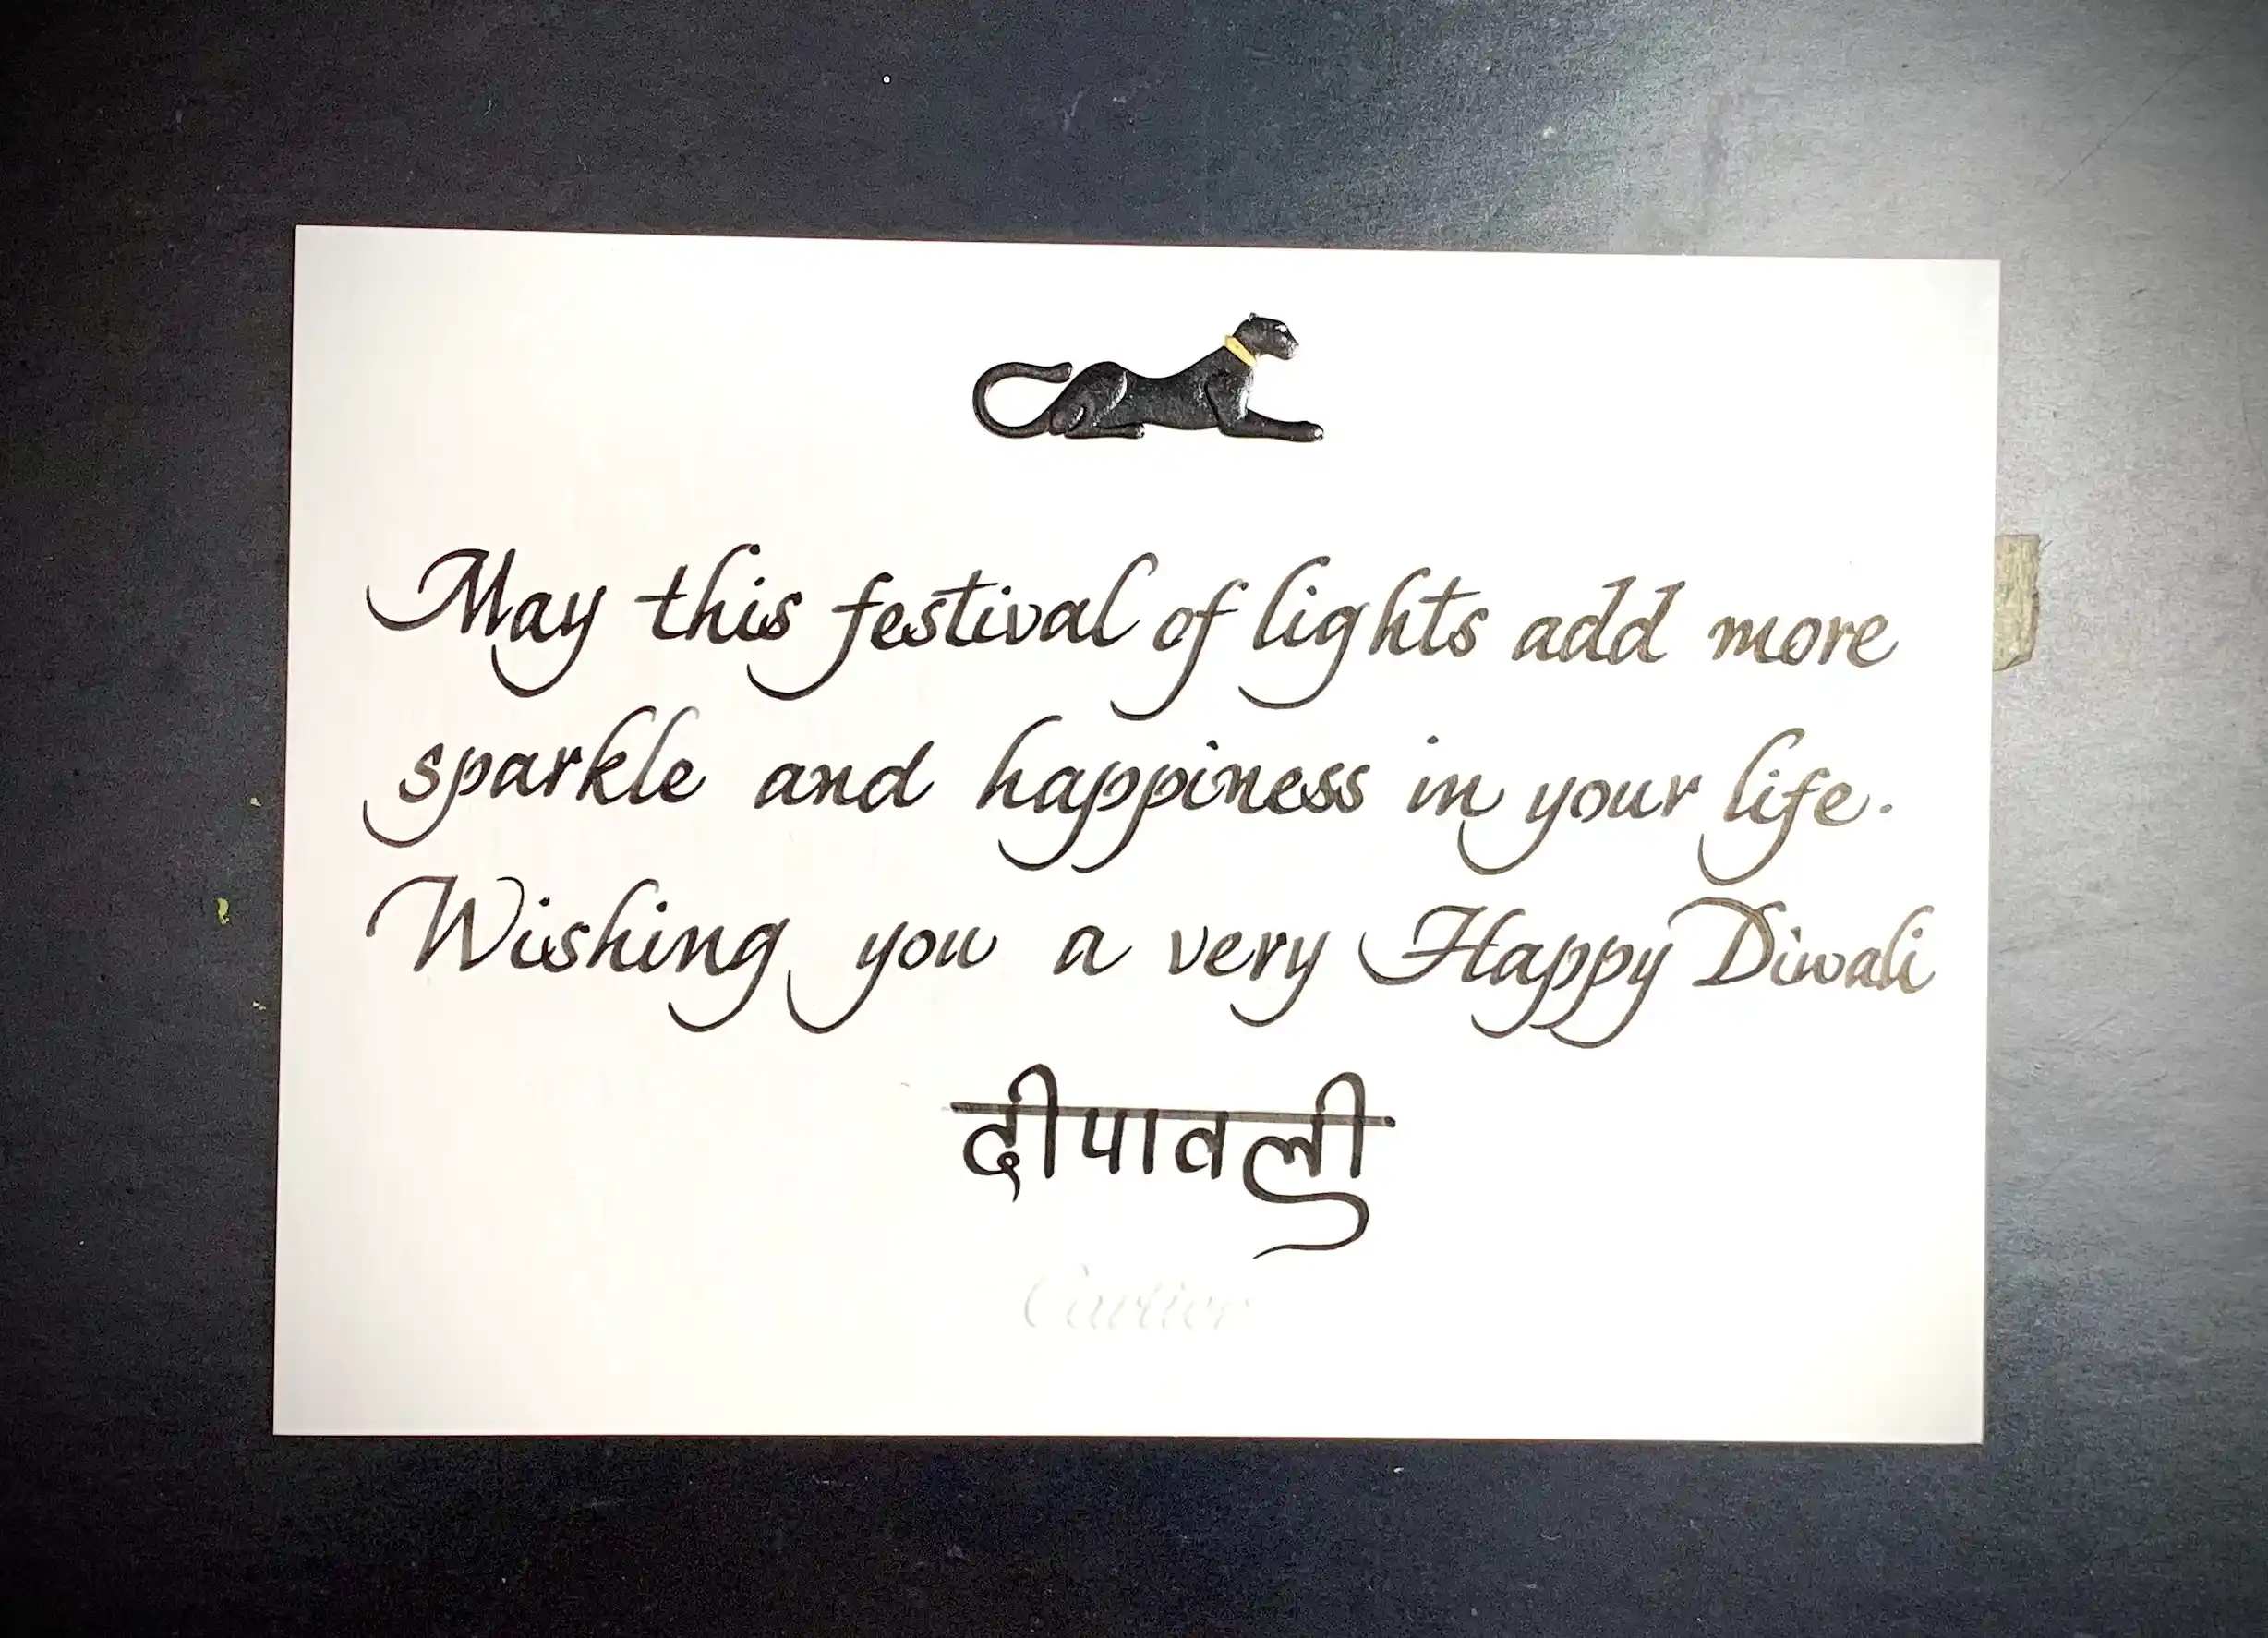 May this festival of lights add more
sparkle and happiness in your life.
Wishing you a very Happy Diwali
दीपावली
Cartier